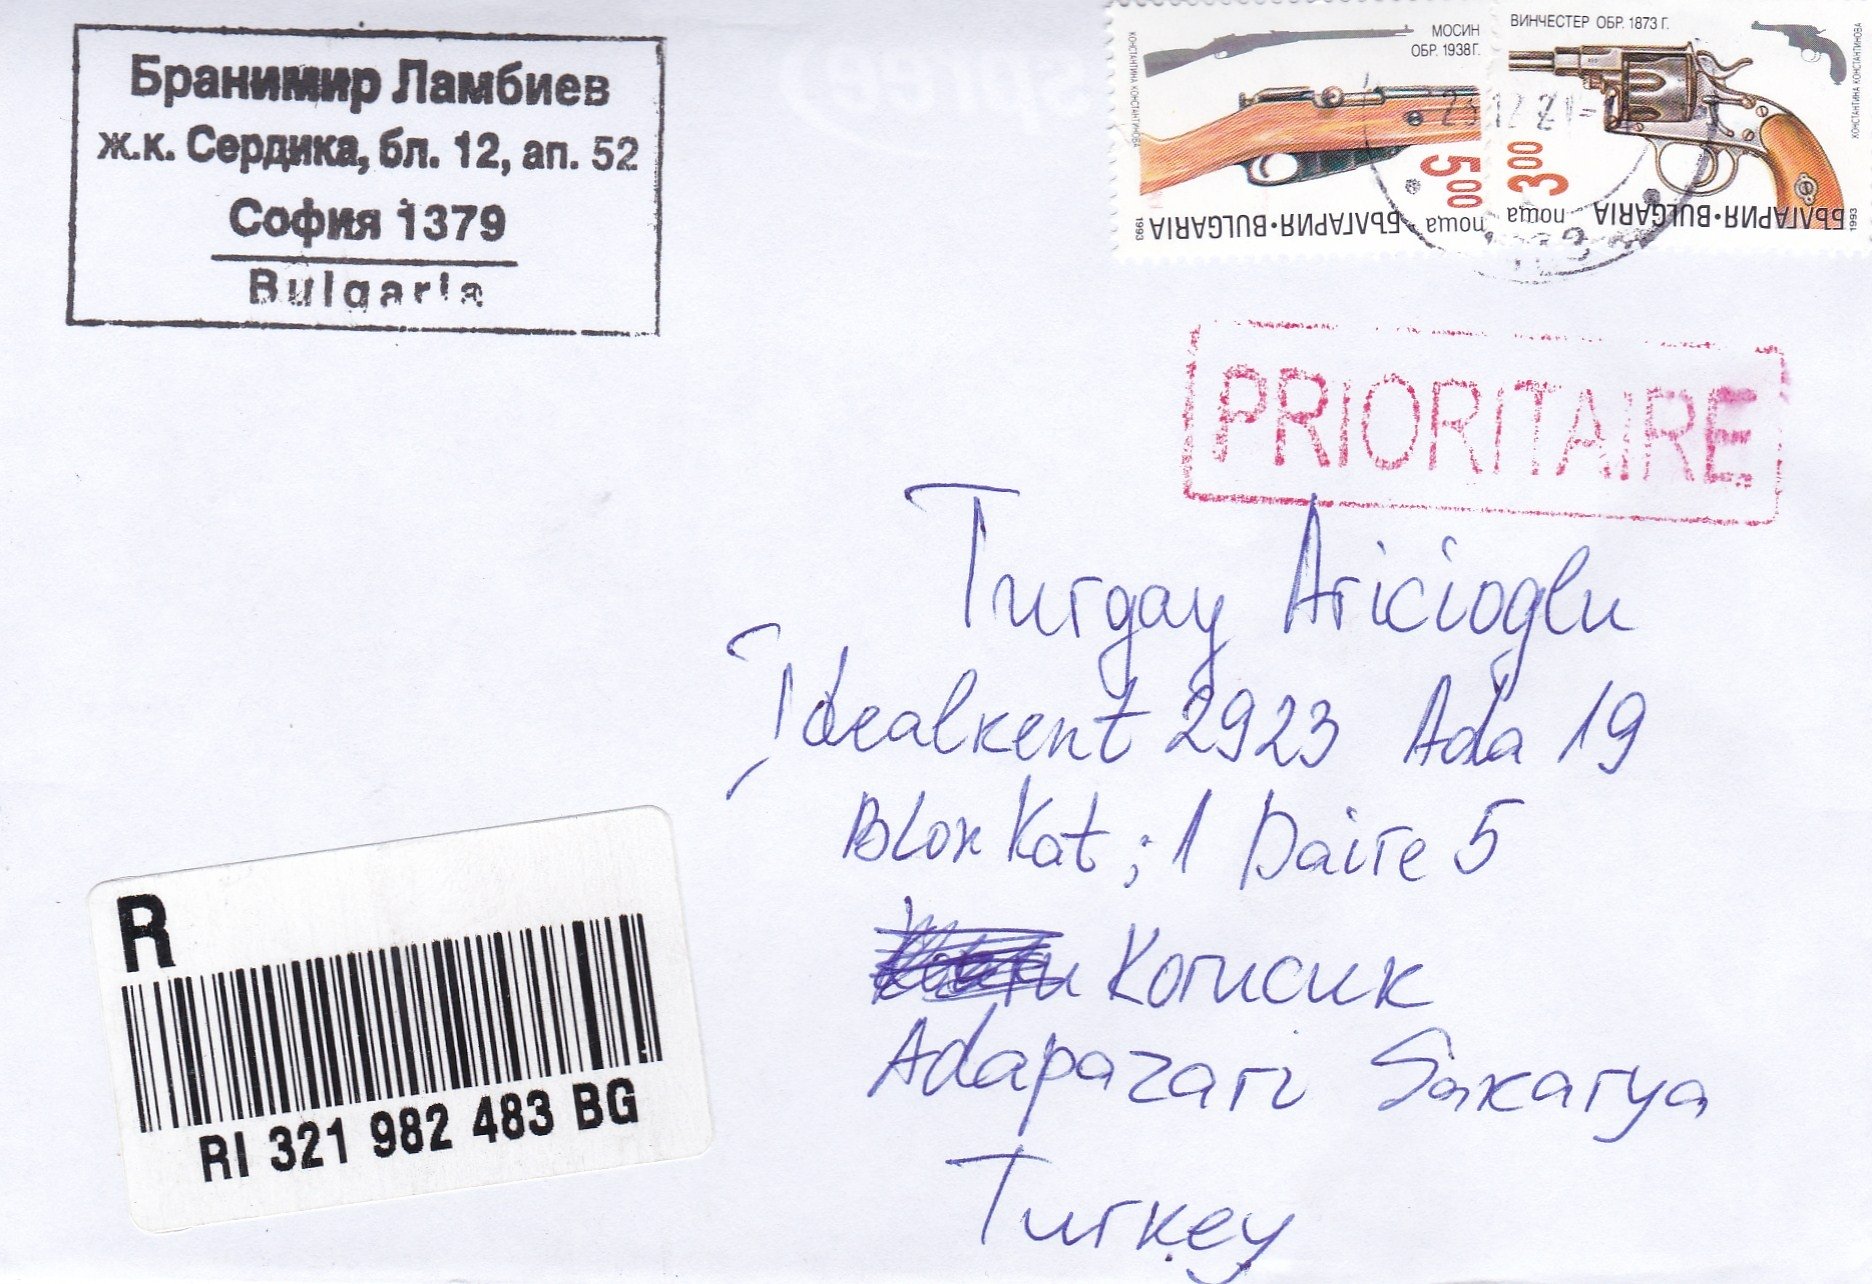 Бранимир Ламбиев
ж.к. Сердика, бл. 12, ап. 52
София 1379
Bulgaria
МОСИН
ОБР. 1938 Г.
КОНСТАНТИНА КОНСТАНТИНОВА
5 00
поща
БЪЛГАРИЯ•BULGARIA
1993
ВИНЧЕСТЕР ОБР. 1873 Г.
КОНСТАНТИНА КОНСТАНТИНОВА
3 00
поща
БЪЛГАРИЯ•BULGARIA
1993
PRIORITAIRE
Turgay Aricioglu
Idealkent 2923 Ada 19
Blok Kat ; 1 Daire 5
Korucuk
Adapazari Sakarya
Turkey
R
RI 321 982 483 BG